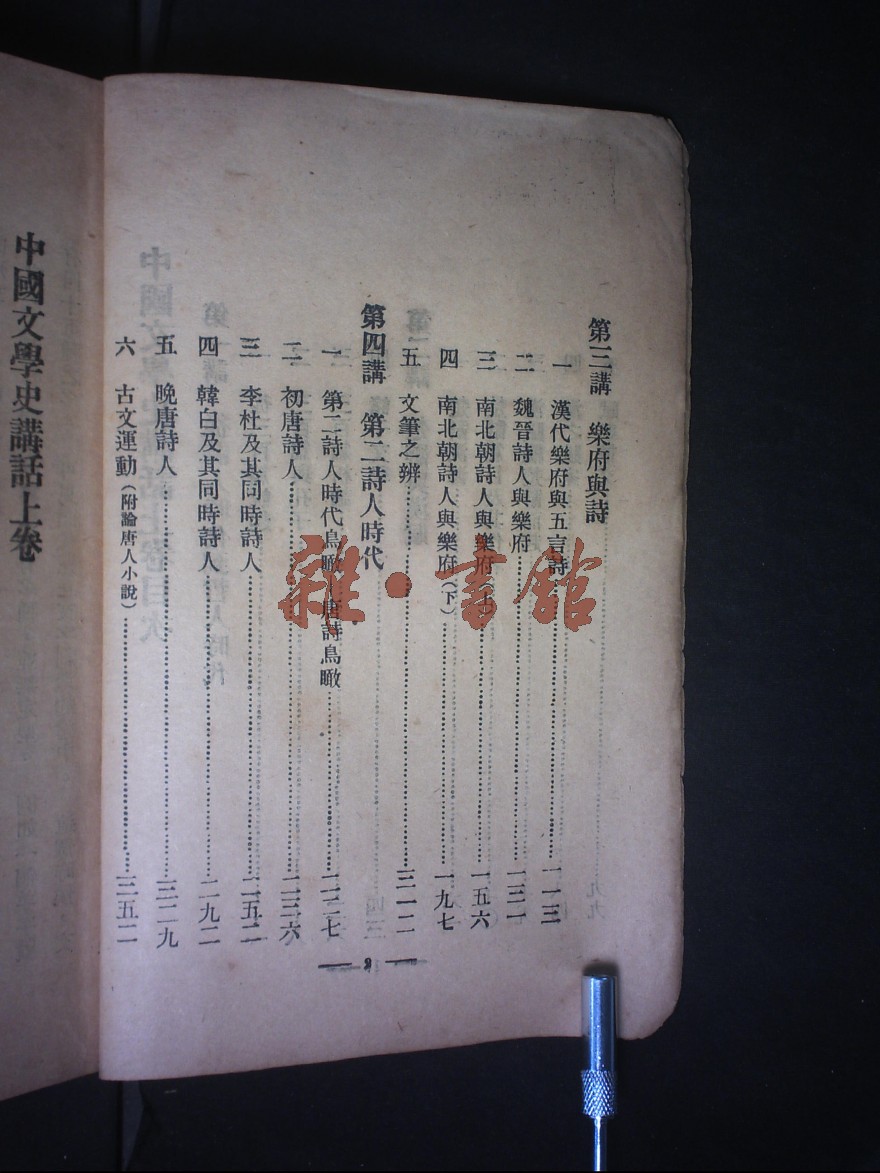 第三講　樂府與詩
一　漢代樂府與五言詩……一一三
二　魏晉詩人與樂府……一三一
三　南北朝詩人與樂府（上）……一五六
四　南北朝詩人與樂府（下）……一九七
五　文筆之辨……二一二
第四講　第二詩人時代
一　第二詩人時代鳥瞰　唐詩鳥瞰……二二七
二　初唐詩人……二三六
三　李杜及其同時詩人……二五二
四　韓白及其同時詩人……二九二
五　晚唐詩人……三二九
六　古文運動（附論唐人小說）……三五二
— 2 —
中國文學史講話上卷
雜·書館